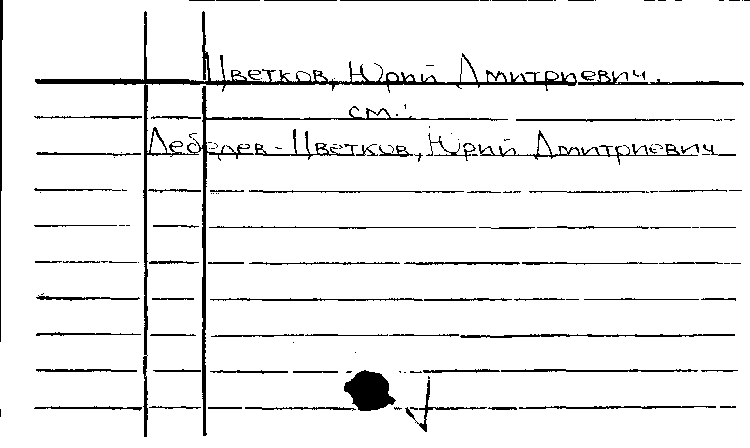 Цветков, Юрий Дмитриевич.
см.:
Лебедев-Цветков, Юрий Дмитриевич